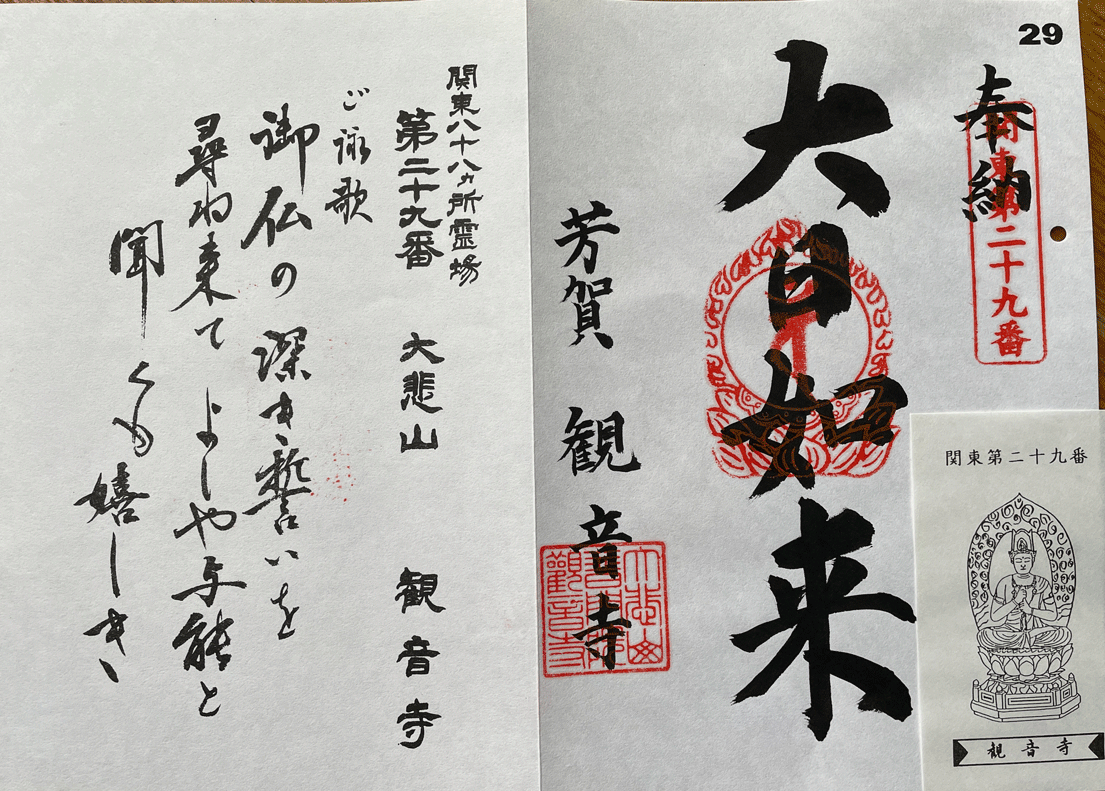 29
奉納
関東第二十九番
大日如来
芳賀 観音寺
関東第二十九番
観音寺
関東八十八ヵ所霊場
第二十九番 大悲山 観音寺
ご詠歌
御仏の 深き誓いを
尋ね来て よしや与能と
聞くも嬉しき